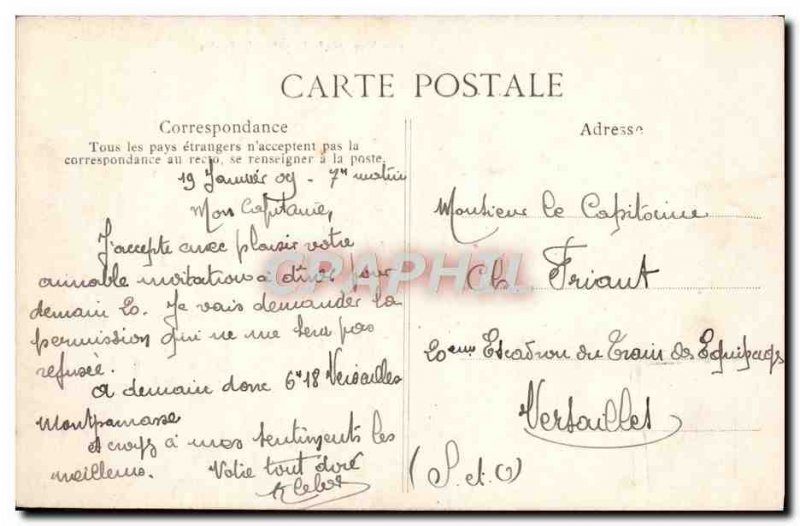 CARTE POSTALE
Correspondance
Tous les pays étrangers n'acceptent pas la
correspondance au recto, se renseigner à la poste.
19 Janvier 09 - 7h matin
Mon Capitaine,
J'accepte avec plaisir votre
aimable invitation à dîner pour
demain 20. Je vais demander la
permission qui ne me sera pas
refusée.
A demain donc 6h18 Versailles
Montparnasse
et croyez à mes sentiments les
meilleurs. Votre tout dévoué
Adresse
Monsieur le Capitaine
Ch. Friant
20eme Escadron du Train des Equipages
Versailles
(S. et O)
CPAPHIL